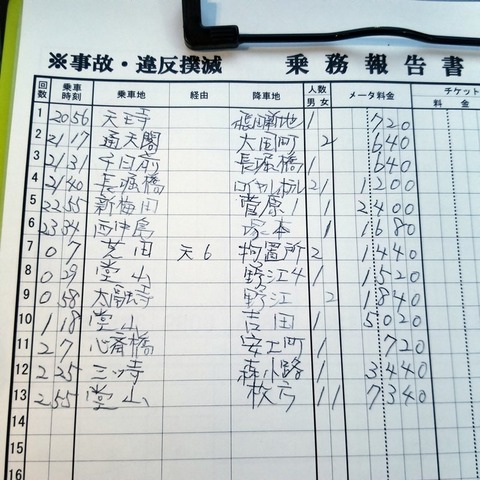 ※事故・違反撲滅 乗務報告書
回数 乗車時刻 乗車地 経由 降車地 人数 男 女 メータ料金 チケット 料金
1 20 56 天王寺 飛田新地 1 720
2 21 17 通天閣 大国町 2 640
3 21 31 千日前 長堀橋 1 640
4 21 40 長堀橋 ロイヤルホテル 2 1 1200
5 22 55 新梅田 菅原1 1 2400
6 23 34 西中島 塚本 1 1680
7 0 7 芝田 天6 拘置所 2 1440
8 0 29 堂山 野江4 1 1520
9 0 58 太融寺 野江 2 1840
10 1 18 堂山 吉田 1 5020
11 2 7 心斎橋 安土町 1 720
12 2 25 三ッ寺 森小路 1 3440
13 2 55 堂山 枚方 1 1 7340
14
15
16